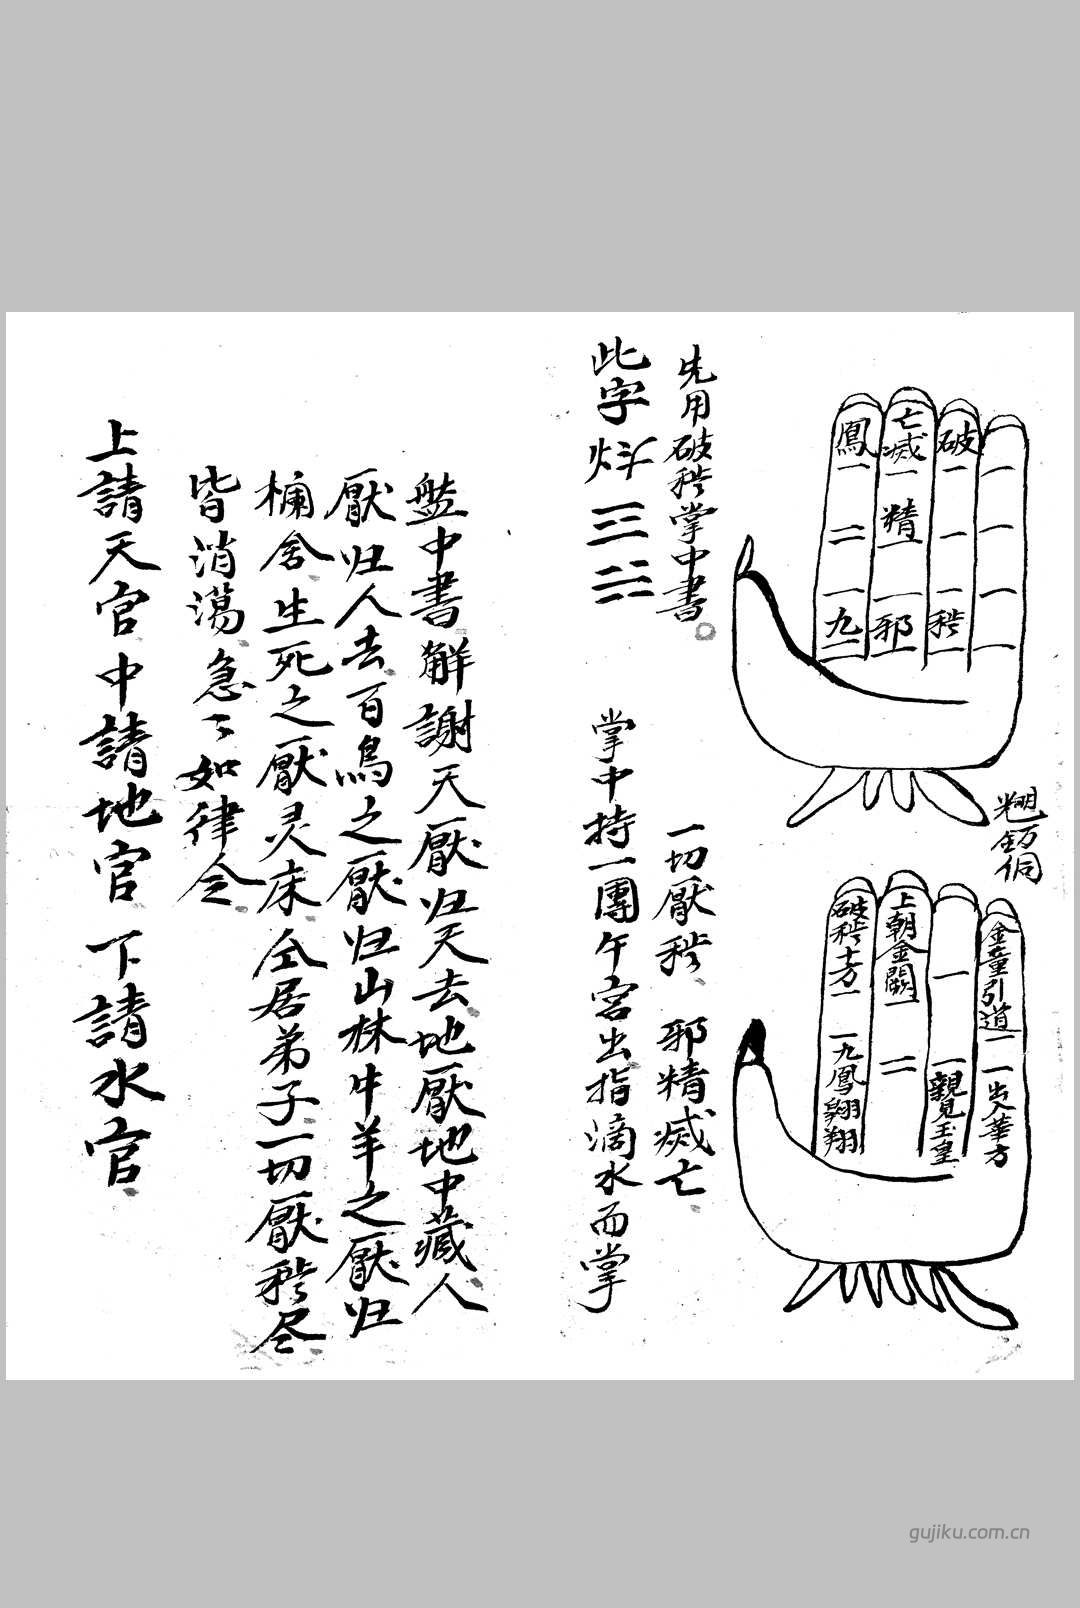 破
秽
亡滅
精
邪
鳳
九
金童引道
出入華方
親見玉皇
上朝金闕
破秽十方
九鳳翱翔
先用破秽掌中書。
一切厭秽 邪精滅亡
此字
掌中持一團午宮出指滴水而掌
盤中書解謝天厭归天去地厭地中藏人
厭归人去百鳥之厭归山林牛羊之厭归
欄舍生死之厭灵床仝居弟子一切厭秽尽
皆消蕩急々如律令
上請天官中請地官下請水官
gujiku.com.cn